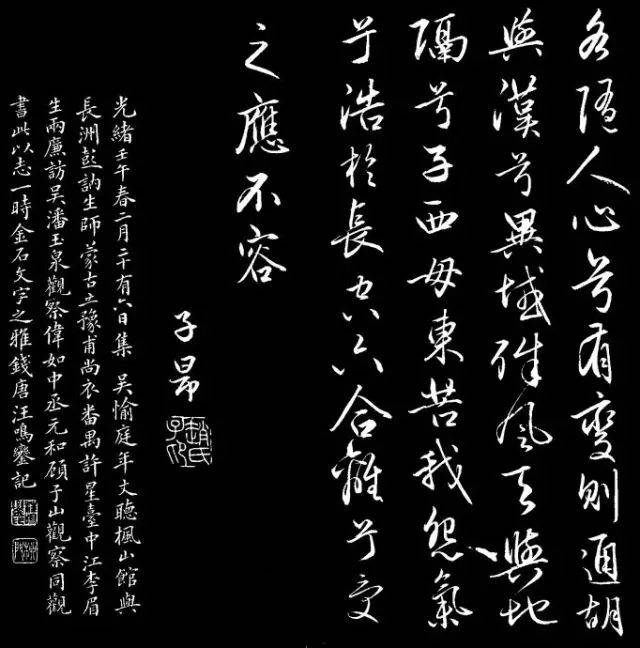 各隨人心兮有變則通胡
與漢兮異域殊風天與地
隔兮子西母東苦我怨氣
兮浩於長空六合雖兮受
之應不容
子昂
趙氏子昂
光緒壬午春二月二十有六日集 吳愉庭年丈聽楓山館與
長洲彭訥生師蒙古立豫甫尚衣番禺許星臺中江李眉
生兩廉訪吳潘玉泉觀察偉如中丞元和顧子山觀察同觀
書此以志一時金石文字之雅錢唐汪鳴鑾記